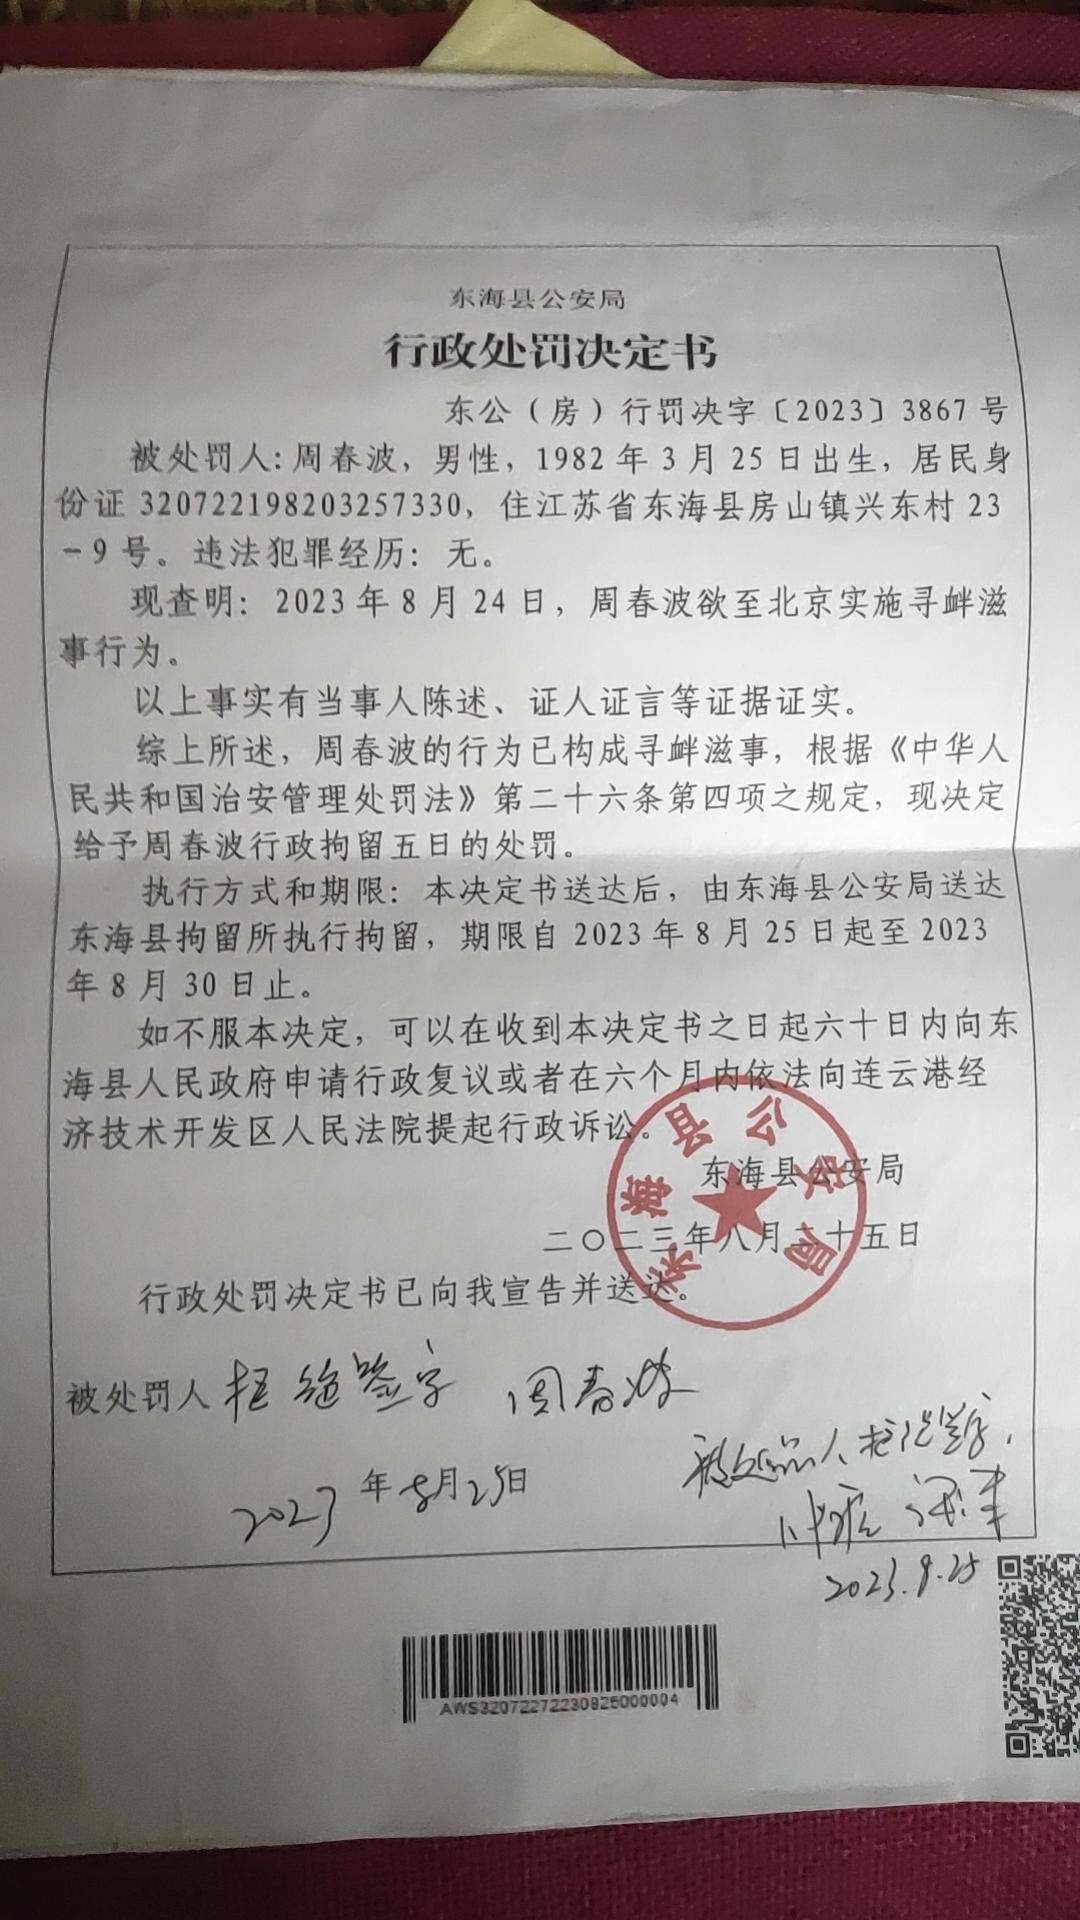 东海县公安局
行政处罚决定书
东公（房）行罚决字〔2023〕3867 号
被处罚人：周春波，男性，1982 年 3 月 25 日出生，居民身
份证 320722198203257330，住江苏省东海县房山镇兴东村 23
－9 号。违法犯罪经历： 无。
现查明：2023 年 8 月 24 日，周春波欲至北京实施寻衅滋
事行为。
以上事实有当事人陈述、证人证言等证据证实。
综上所述，周春波的行为已构成寻衅滋事，根据《中华人
民共和国治安管理处罚法》第二十六条第四项之规定，现决定
给予周春波行政拘留五日的处罚。
执行方式和期限：本决定书送达后，由东海县公安局送达
东海县拘留所执行拘留，期限自 2023 年 8 月 25 日起至 2023
年 8 月 30 日止。
如不服本决定，可以在收到本决定书之日起六十日内向东
海县人民政府申请行政复议或者在六个月内依法向连云港经
济技术开发区人民法院提起行政诉讼。
东海县公安局
东海县公安局
二〇二三年八月二十五日
行政处罚决定书已向我宣告并送达。
被处罚人 拒绝签字 周春波
被处罚人拒绝签字，
2023 年 8月25日
2023.8.25
AWS32072272230825000004